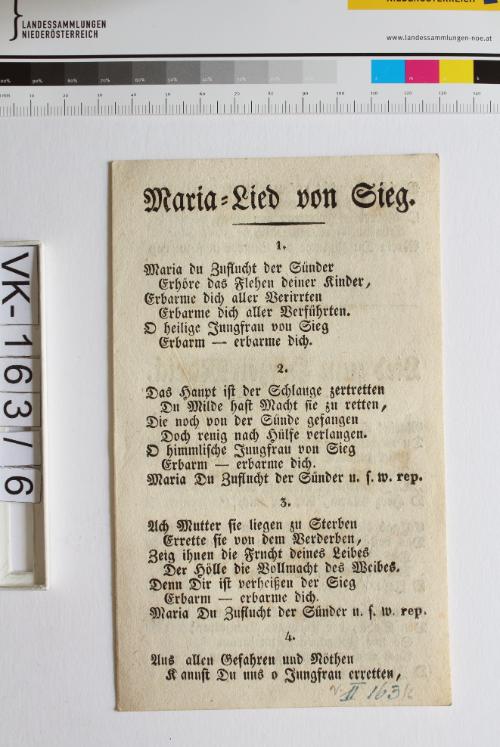 LANDESSAMMLUNGEN
NIEDERÖSTERREICH
www.landessammlungen-noe.at
Maria-Lied von Sieg.
1.
Maria du Zuflucht der Sünder
Erhöre das Flehen deiner Kinder,
Erbarme dich aller Verirrten
Erbarme dich aller Verführten.
O heilige Jungfrau von Sieg
Erbarm — erbarme dich.
2.
Das Haupt ist der Schlange zertretten
Du Milde hast Macht sie zu retten,
Die noch von der Sünde gefangen
Doch reuig nach Hülfe verlangen.
O himmlische Jungfrau von Sieg
Erbarm — erbarme dich.
Maria Du Zuflucht der Sünder u. s. w. rep.
3.
Ach Mutter sie liegen zu Sterben
Errette sie von dem Verderben,
Zeig ihnen die Frucht deines Leibes
Der Hölle die Vollmacht des Weibes.
Denn Dir ist verheißen der Sieg
Erbarm — erbarme dich.
Maria Du Zuflucht der Sünder u. s. w. rep.
4.
Aus allen Gefahren und Nöthen
Kannst Du uns o Jungfrau erretten,
II 163
VK-163/6